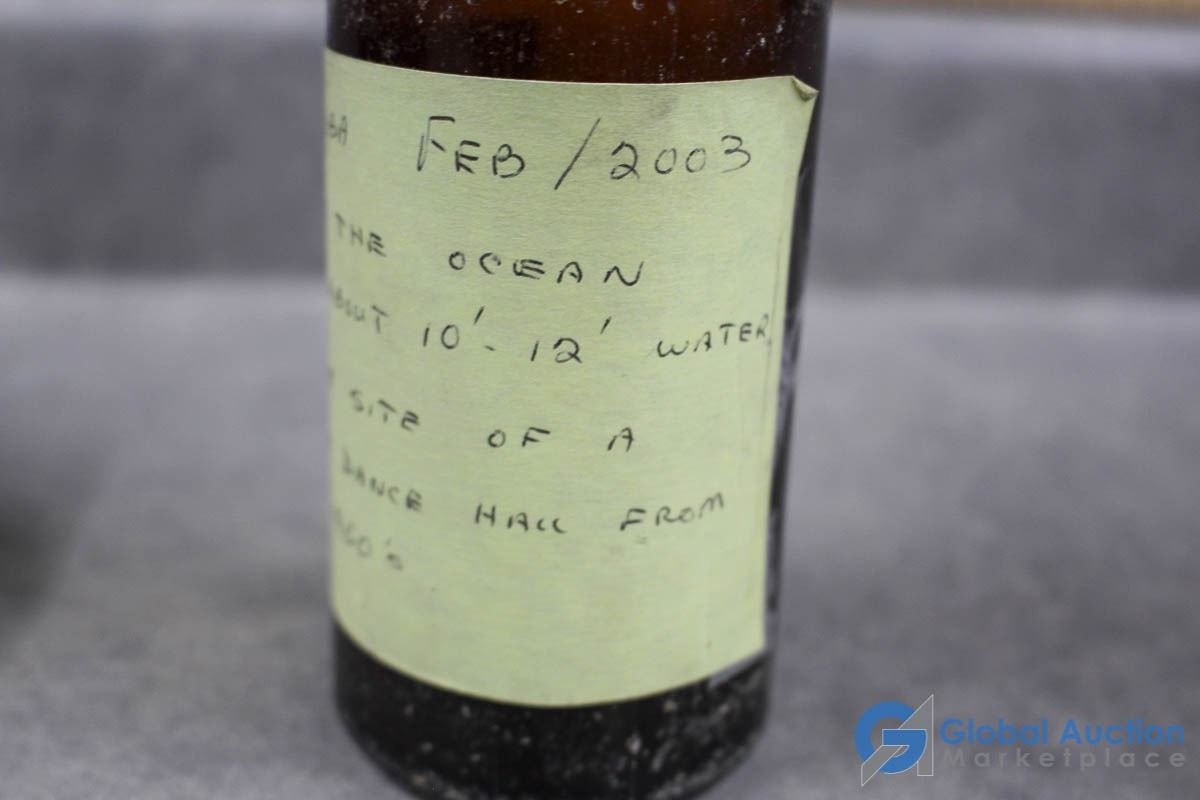 FEB / 2003
THE OCEAN
ABOUT 10' - 12' WATER,
SITE OF A
DANCE HALL FROM
Global Auction
Marketplace